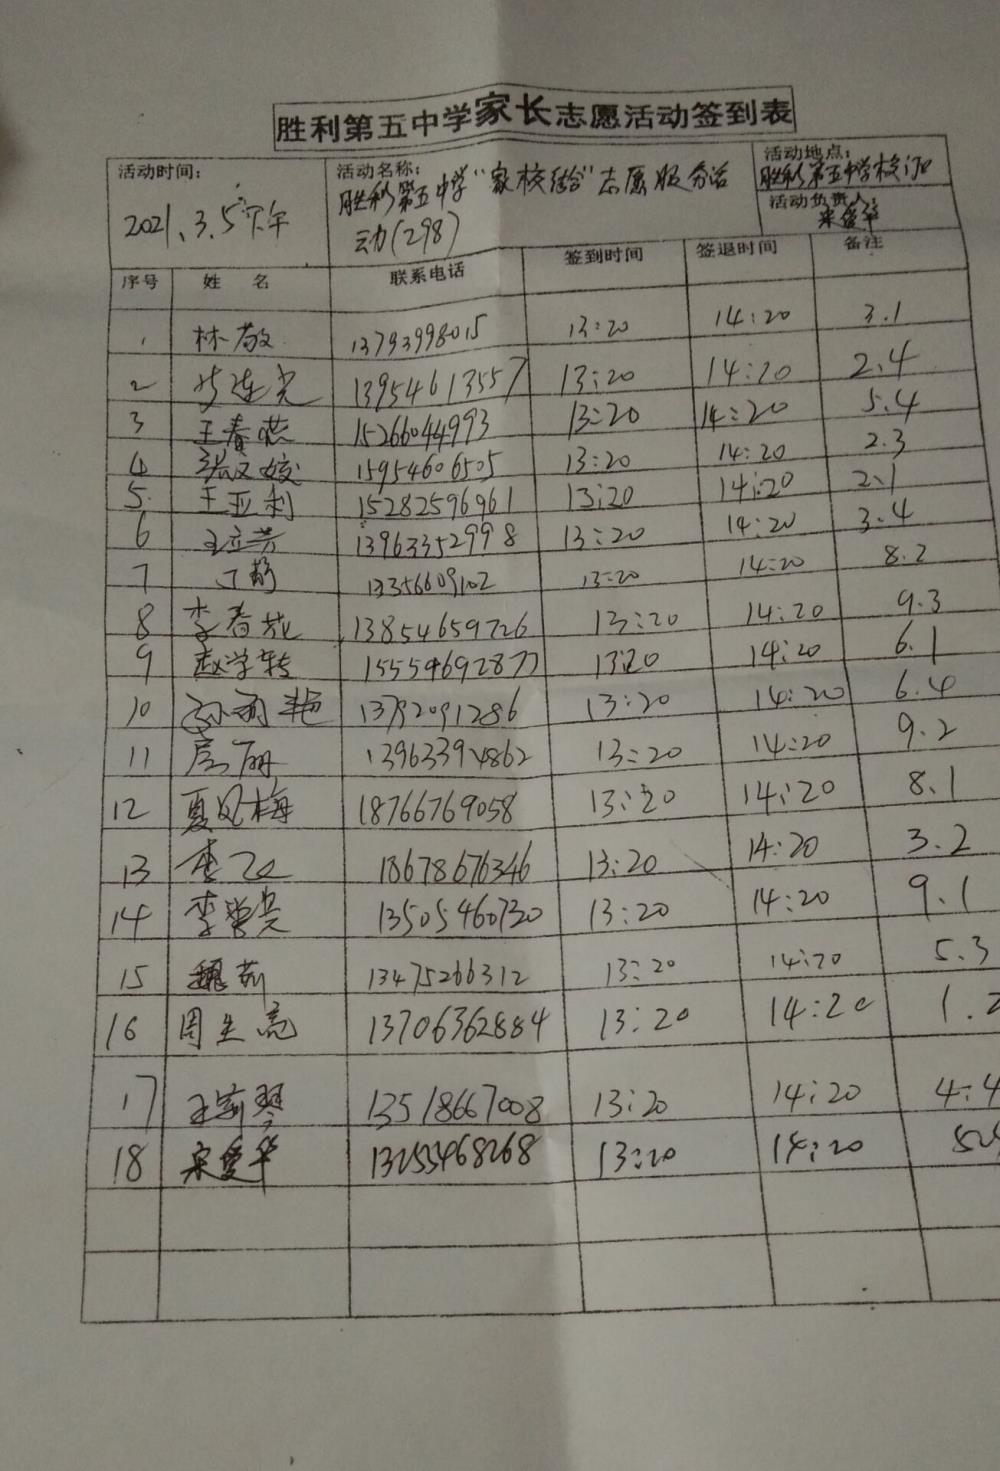 胜利第五中学家长志愿活动签到表
活动时间: 活动名称: 活动地点:
2021.3.5下午 胜利第五中学“家校结合”志愿服务活动(298) 胜利第五中学校门口
活动负责人: 宋爱华
序号 姓 名 联系电话 签到时间 签退时间 备注
1 林敬 13793998015 13:20 14:20 3.1
2 13954613557 13:20 14:20 2.4
3 王春燕 15266044993 13:20 14:20 5.4
4 15954606505 13:20 14:20 2.3
5. 王亚利 15282596961 13:20 14:20 2.1
6 王立芳 13963352998 13:20 14:20 3.4
7 丁静 13356609102 13:20 14:20 8.2
8 李春花 13854659726 13:20 14:20 9.3
9 赵学转 15554692877 13:20 14:20 6.1
10 13792091286 13:20 14:20 6.4
11 房丽 13963394862 13:20 14:20 9.2
12 夏风梅 18766769058 13:20 14:20 8.1
13 李 18678676346 13:20 14:20 3.2
14 李学亮 13505460730 13:20 14:20 9.1
15 魏莉 13475266312 13:20 14:20 5.3
16 周生亮 13706362884 13:20 14:20 1.2
17 王新琴 13518667008 13:20 14:20 4.4
18 宋爱华 13255468268 13:20 14:20